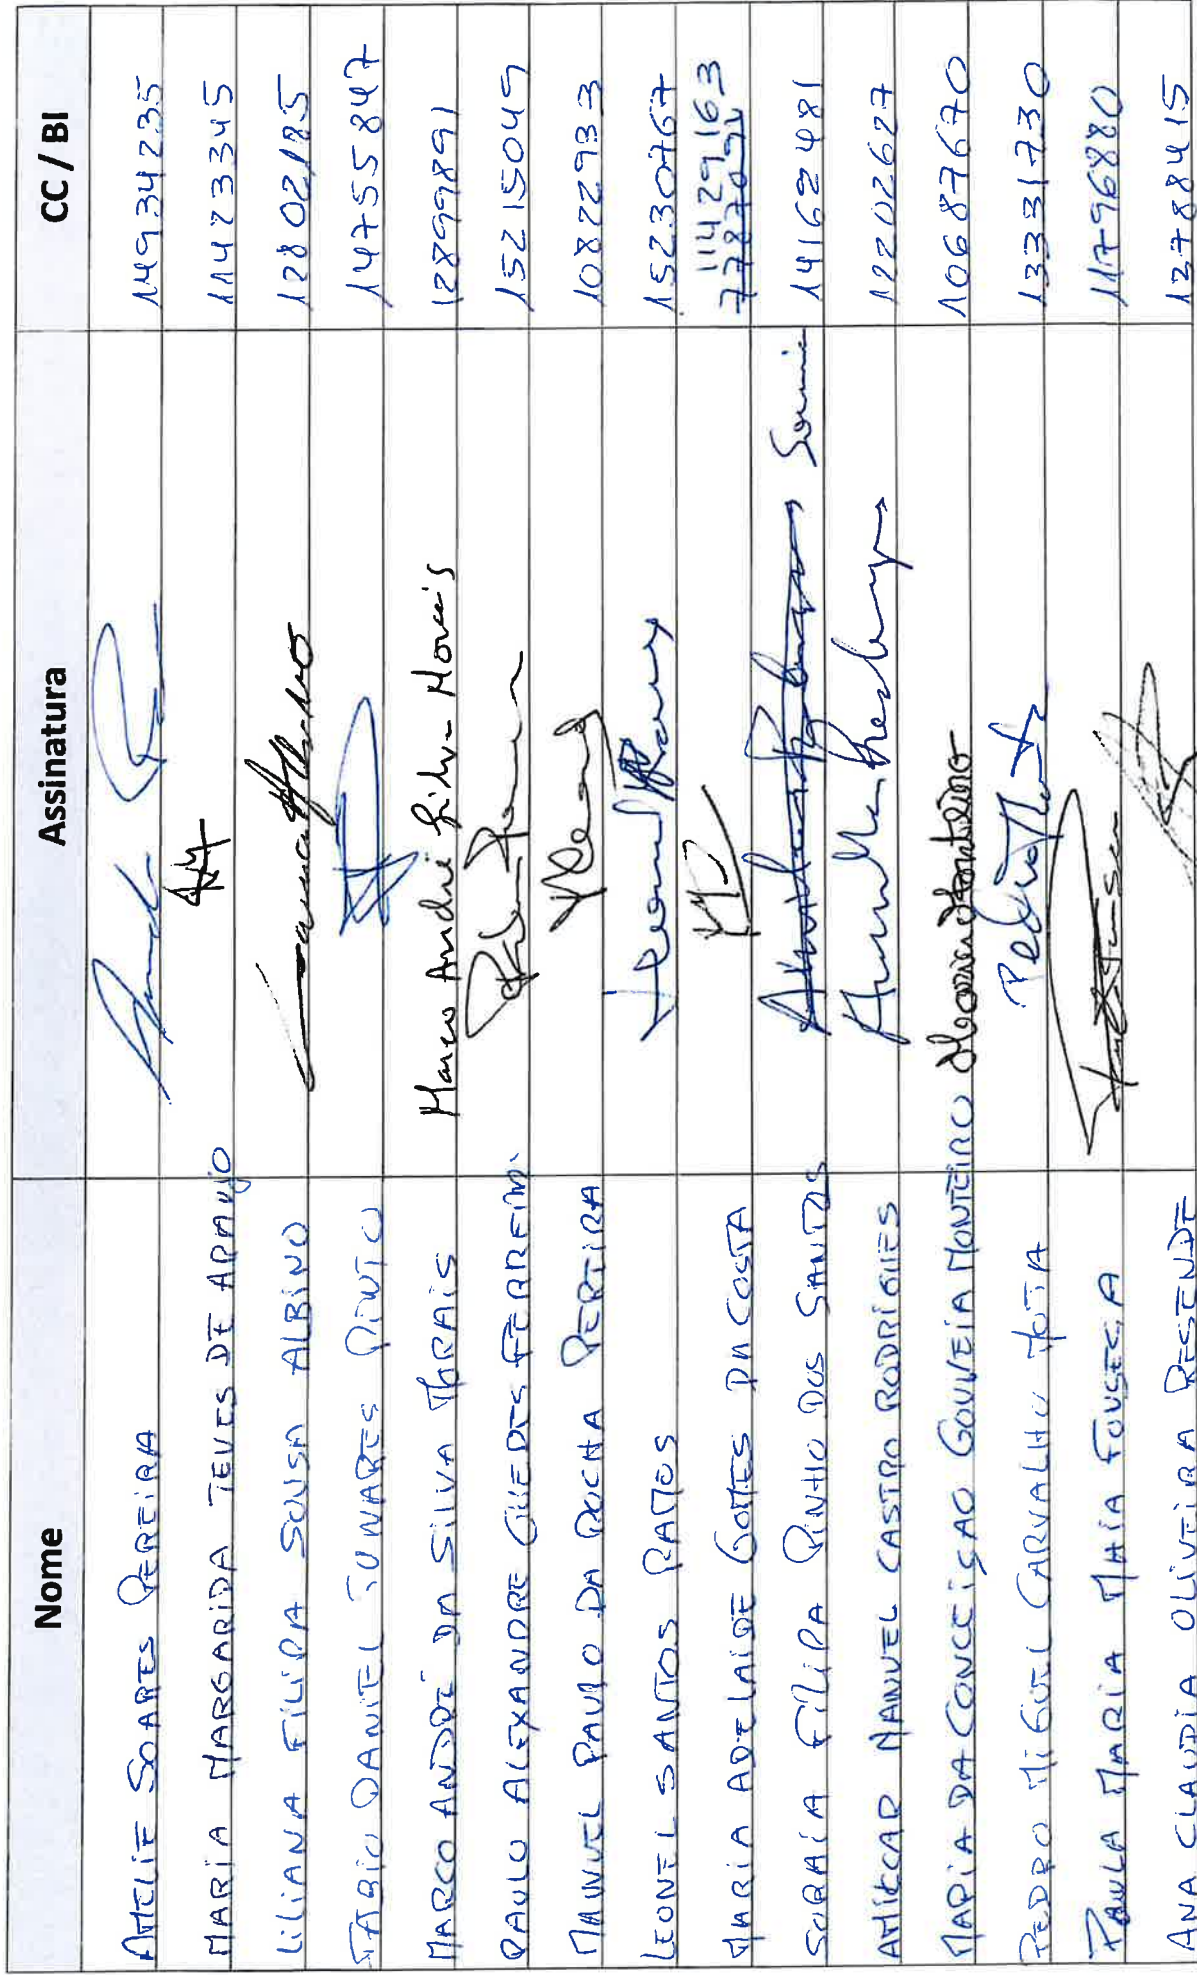 Nome Assinatura CC / BI
AMELIE SOARES PEREIRA 14934235
MARIA MARGARIDA TEVES DE ARAUJO 11423345
LILIANA FILIPA SOUSA ALBINO 12802185
FABIO DANIEL TAVARES PINTO 14755847
MARCO ANDRÉ DA SILVA MORAIS Marco André Silva Morais 12899891
PAULO ALEXANDRE GUEDES FERREIRA 15215049
MANUEL PAULO DA ROCHA PEREIRA 10822933
LEONEL SANTOS RAMOS 15230767
MARIA ADELAIDE GOMES DA COSTA 11429163
SORAIA FILIPA PINHO DOS SANTOS Soraia 14162481
AMILCAR MANUEL CASTRO RODRIGUES 12202627
MARIA DA CONCEIÇAO GOUVEIA MONTEIRO 10687670
PEDRO MIGUEL CARVALHO MOTA Pedro Mota 13331730
PAULA MARIA MAIA FONSECA 11796880
ANA CLAUDIA OLIVEIRA RESENDE 13788415